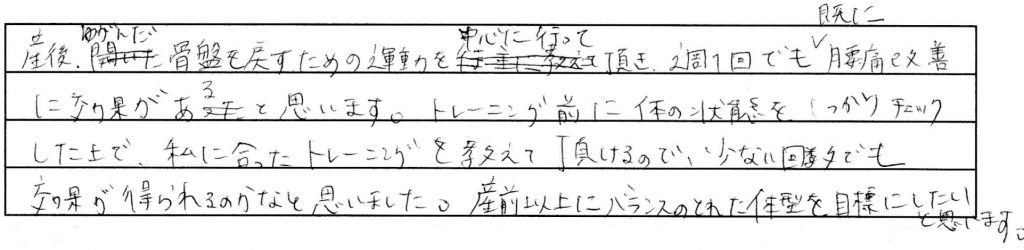 既に
ゆがんだ 中心に行って
産後、開いた骨盤を戻すための運動を行重に教えて頂き、週1回でも腰痛改善
る
に効果があったと思います。トレーニング前に体の状態をしっかりチェック
した上で、私に合ったトレーニングを教えて頂けるので、少ない回数でも
効果が得られるのかなと思いました。産前以上にバランスのとれた体型を目標にしたい
と思います。